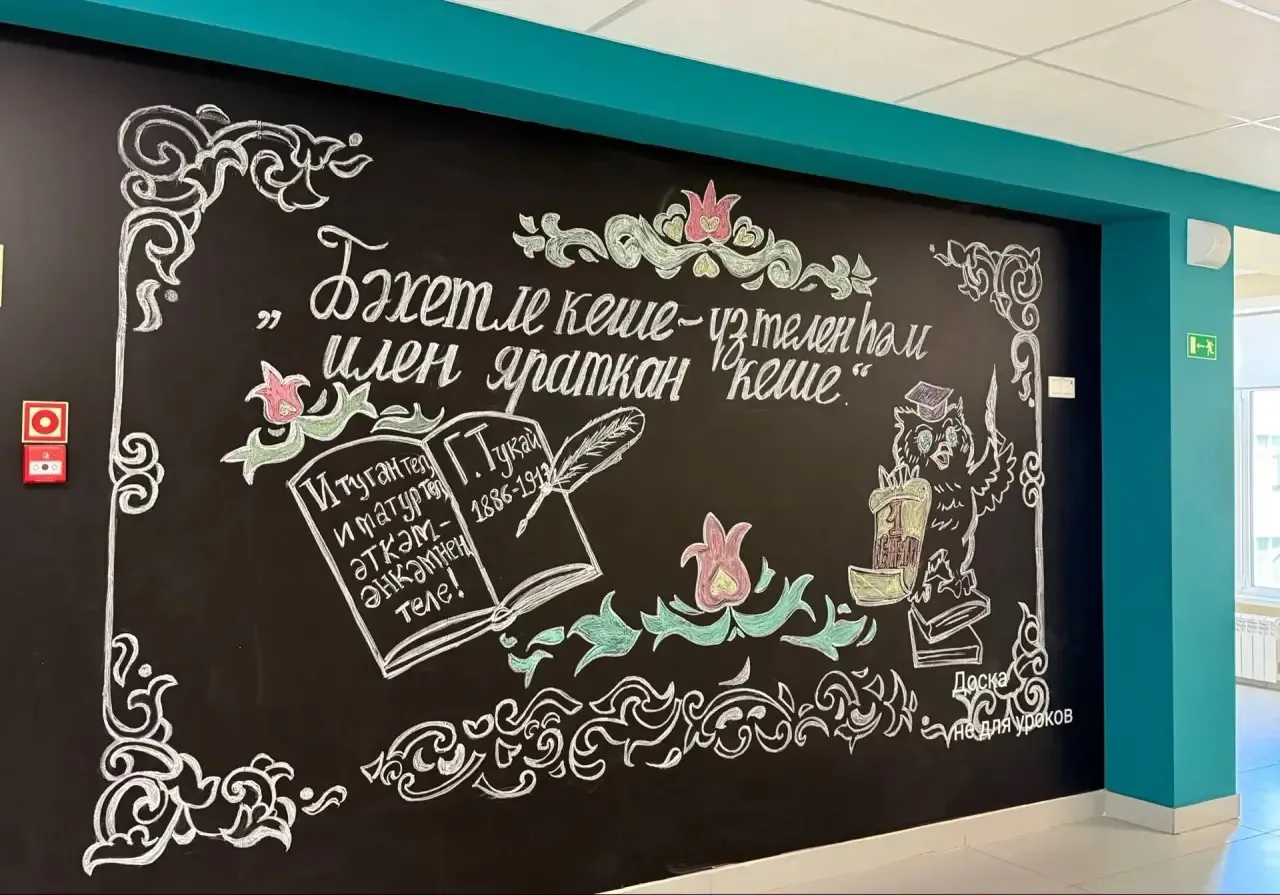 „Бәхетле кеше - үз телен һәм
илен яраткан кеше.“
И туган тел
и матур тел
әткәм-
әнкәмнең
теле!
Г. Тукай
1886-1913
Доска
не для уроков